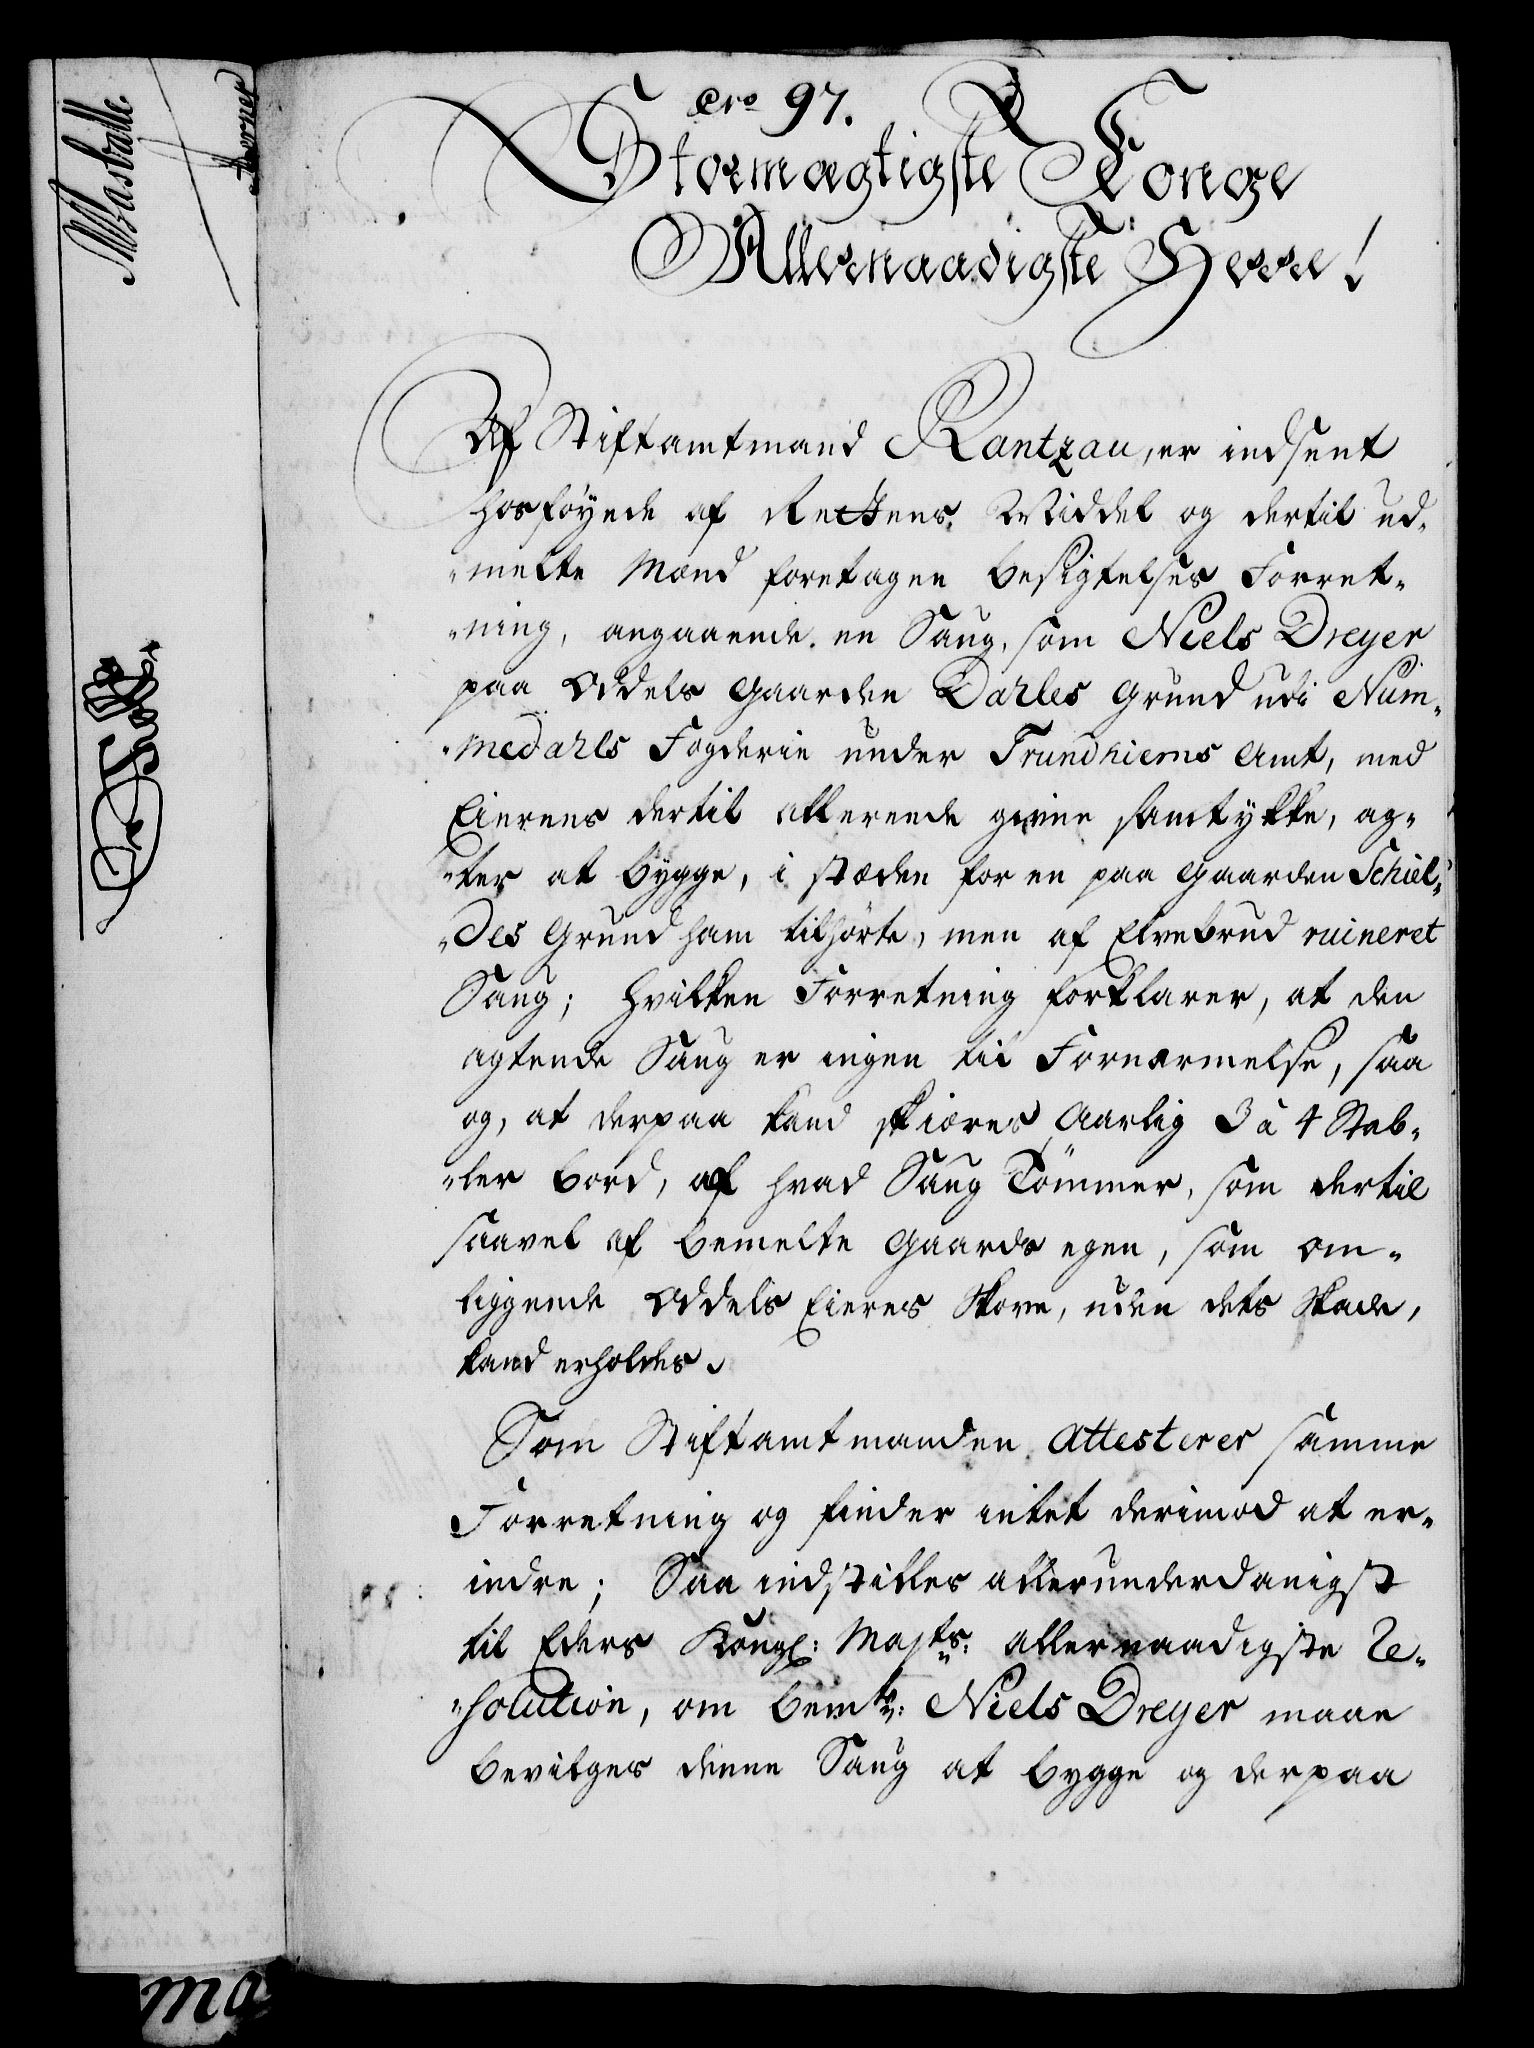 Nro 97.
Stormægtigste Konge
Allernaadigste Herre!
Af Stiftamtmand Rantzau, er indsent
hosføyede af Rettens Middel og dertil ud-
-melte Mænd foretagen Besigtelses Forret-
-ning, angaaende en Saug, som Niels Dreyer
paa Oddels Gaarden Darles Grund udi Num-
-medarls Fogderie under Trundhiems Amt, med
Eierens dertil allerede givne samtykke, ag-
-ter at bygge, i stæden for en paa Gaarden Schiel-
-des Grund ham tilhørte, men af Elvebrud ruineret
Saug; hvilken Forretning forklarer, at den
agtende Saug er ingen til Fornærmelse, saa
og, at derpaa kand skiæres Aarlig 3 à 4 Stab-
-ler Bord, af hvad Saug Tömmer, som dertil
saavel af bemelte Gaards egen, som om-
liggende Oddels Eieres Skove, uden dets Skade,
kand erholdes.
Som Stiftamtmanden Attesterer samme
Forretning og finder intet derimod at er-
indre; Saa indstilles allerunderdanigst
til Eders Kongl: Majts: allernaadigste Re-
-solution, om bemte: Niels Dreyer maae
bevilges denne Saug at bygge og derpaa
Masballe.
Horner
ma